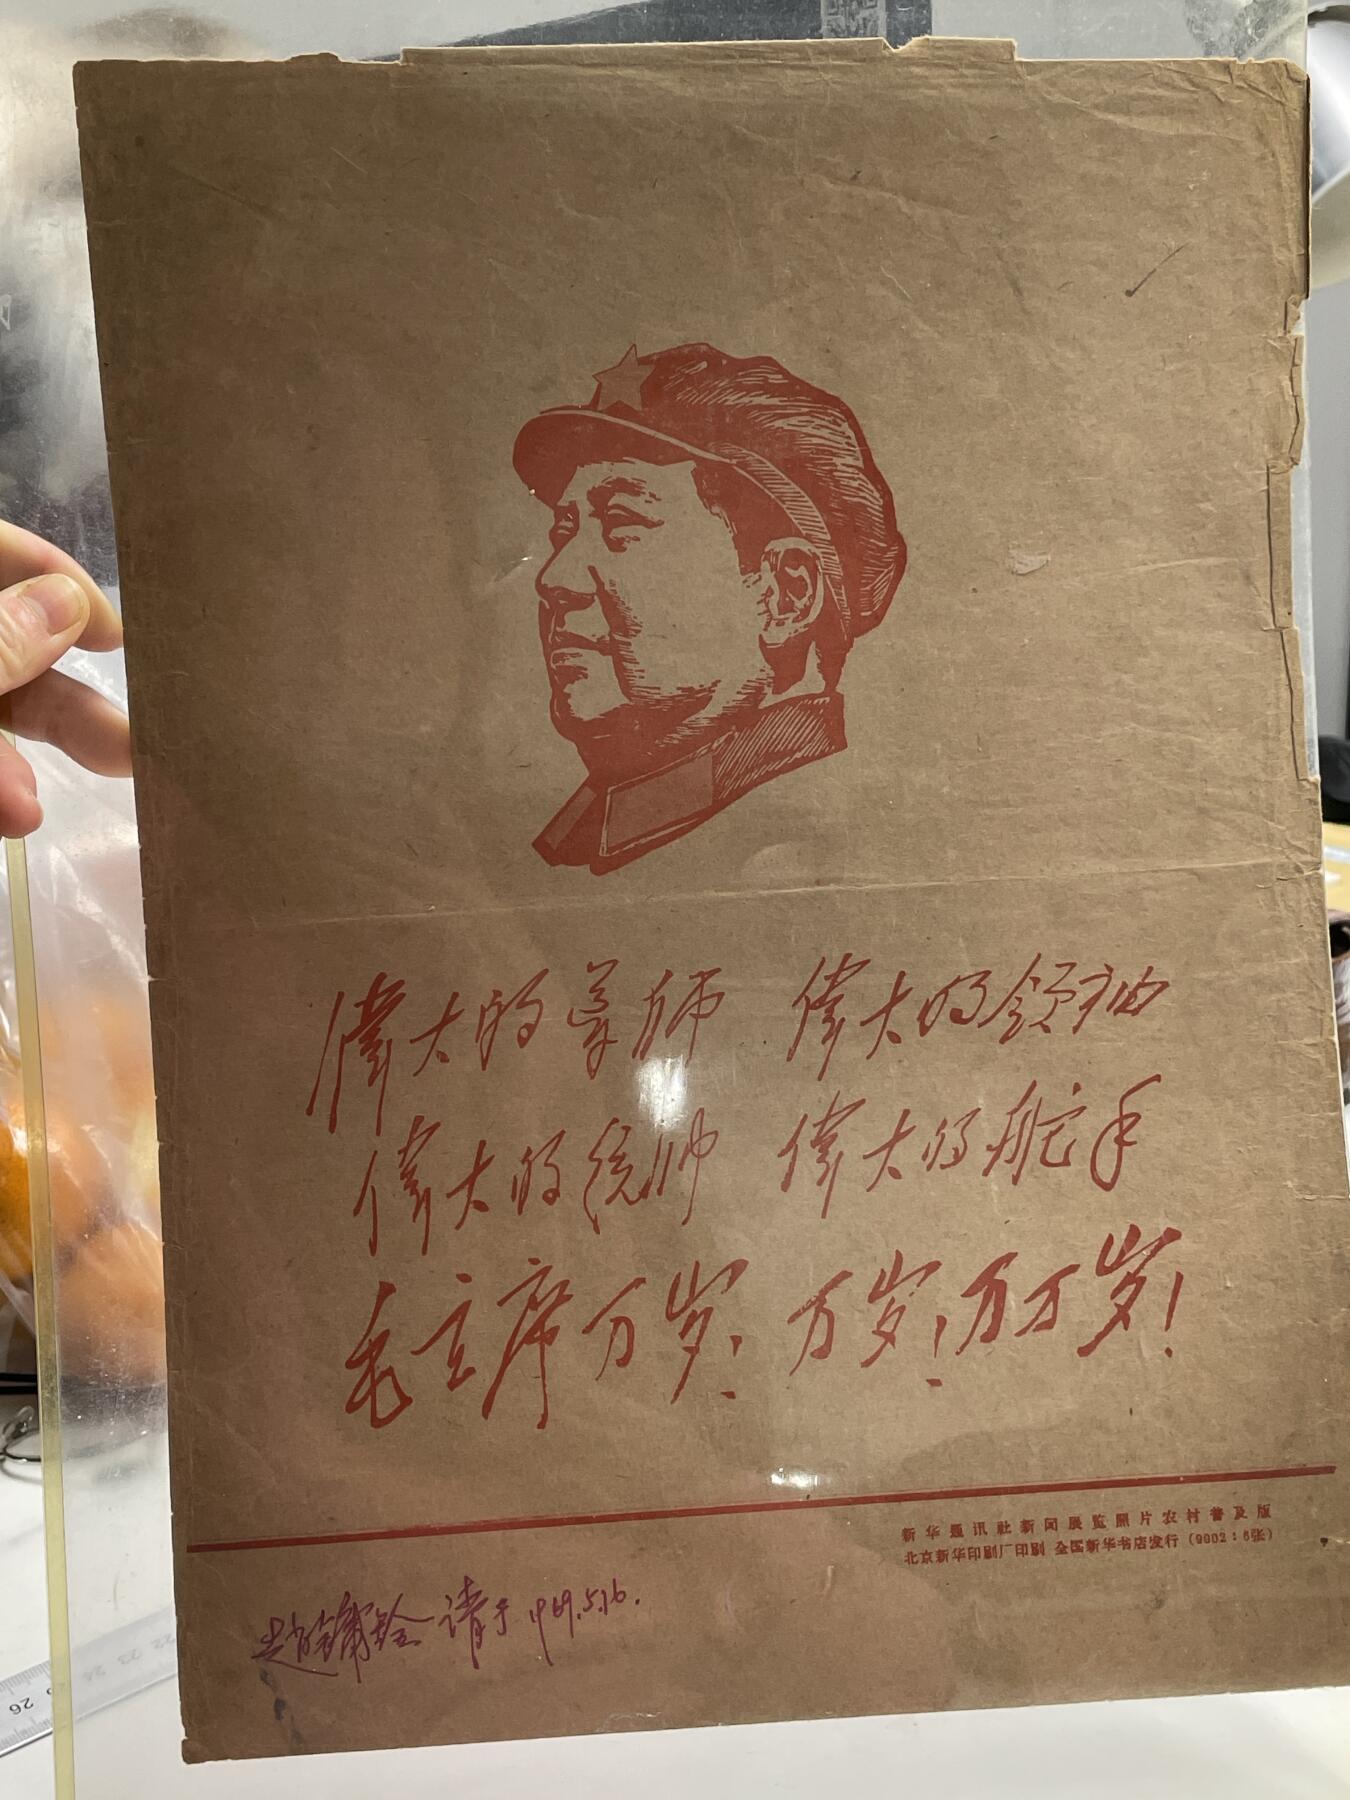 偉大的导师 偉大的领袖
偉大的统帅 偉大的舵手
毛主席万岁!万岁!万万岁!
新华通讯社新闻展览照片农村普及版
北京新华印刷厂印刷 全国新华书店发行(9002:6张)
赵镛铨 请于1969.5.16.
26